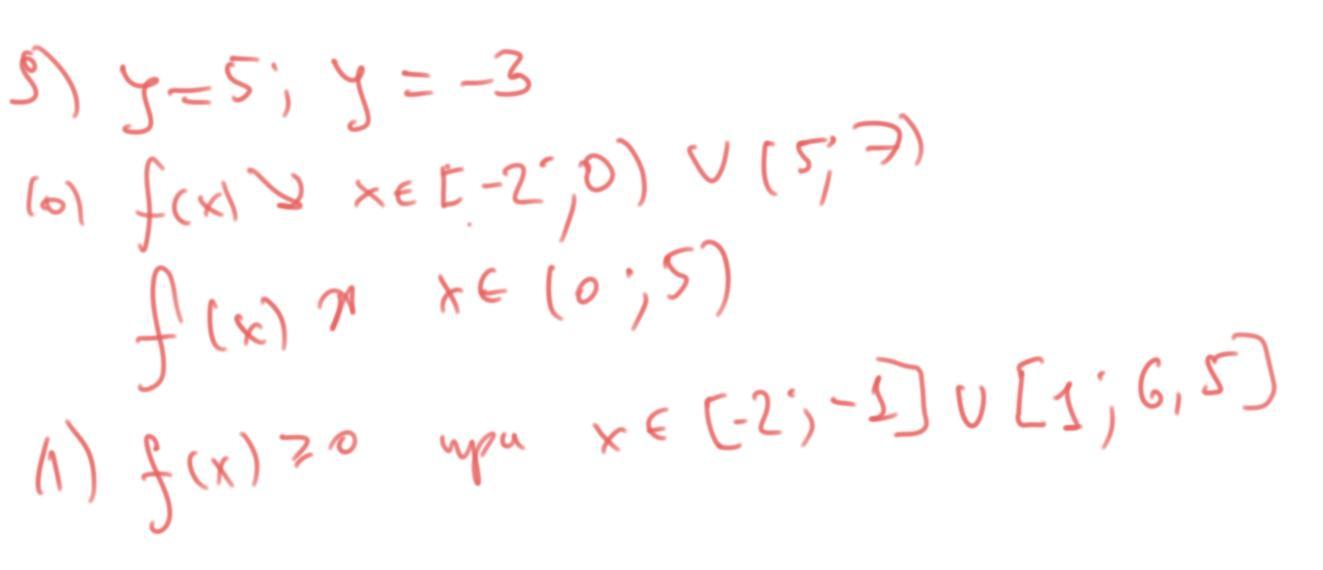 9) y=5; y = -3
10) f(x) ↘ x∈ [-2; 0) ∪ (5; 7)
f(x) ↗ x∈ (0; 5)
11) f(x) ≥0 при x∈ [-2; -1] ∪ [1; 6,5]